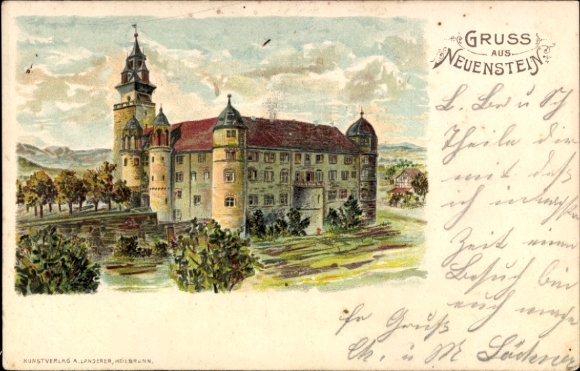 GRUSS
AUS
NEUENSTEIN.
L. Br u Sch
Theile dir
mit daß
ich
Zeit einen
Besuch bei
euch mache
Gruß
u M
KUNSTVERLAG A. LANDERER, HEILBRUNN.